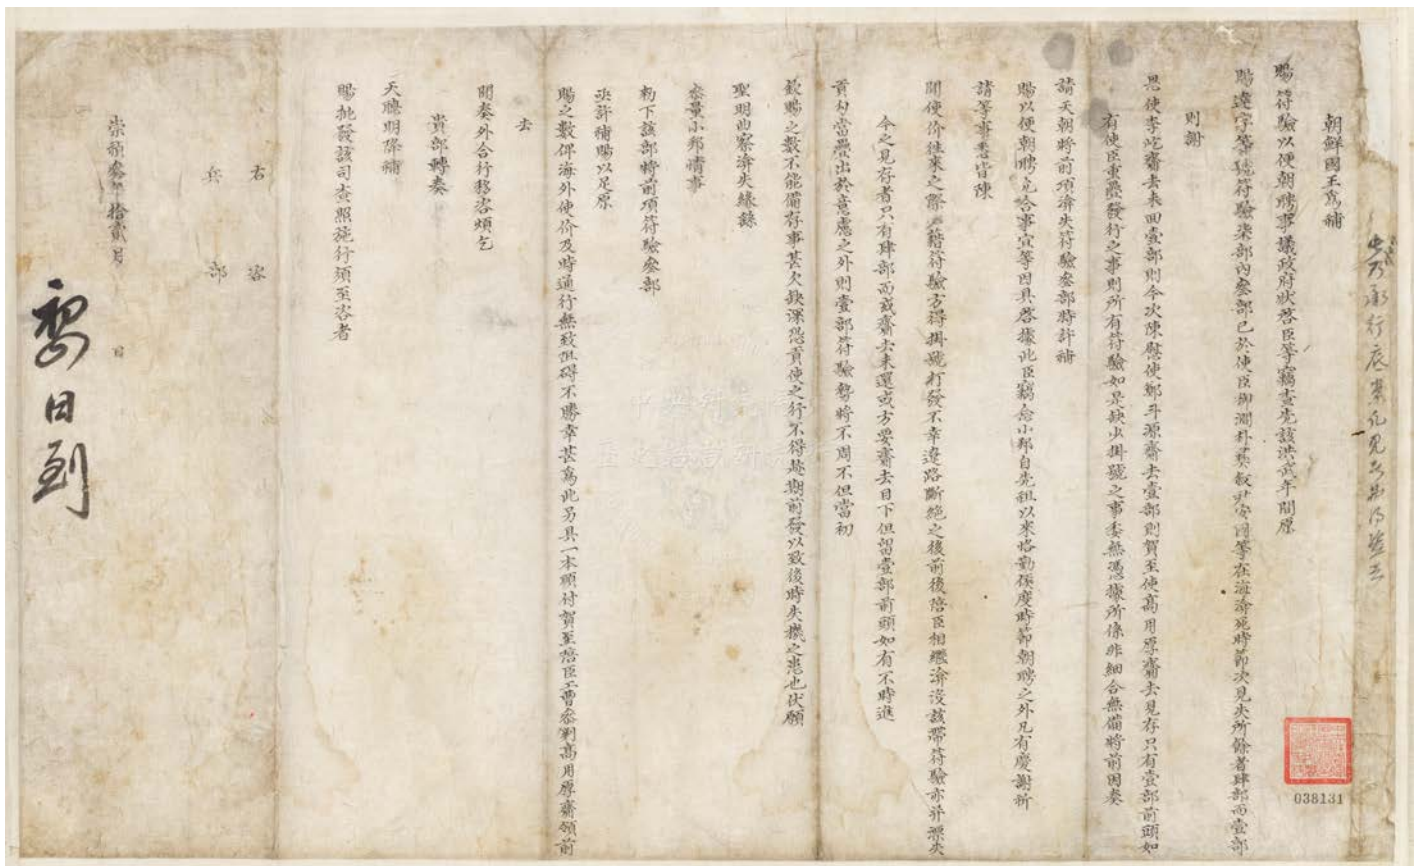 朝鮮國王爲補
賜符驗以便朝聘事議政府狀啓臣等竊查先該洪武年間原
賜達字等號符驗柒部內叁部已於使臣柳澗朴彝叙尹安國等在海渰死時節次見失所餘者肆部而壹部
則謝
恩使李忔齎去未回壹部則今次陳慰使鄭斗源齎去壹部則賀至使高用厚齎去見存只有壹部前頭如
有使臣重疊發行之事則所有符驗如是缺少掛號之事委無憑據所係非細合無備將前因奏
請天朝將前項渰失符驗叁部特許補
賜以便朝聘允合事宜等因具啓據此臣竊念小邦自先祖以來恪勤候度時節朝聘之外凡有慶謝祈
請等事悉皆陳
聞使价往來之際必藉符驗方得掛號打發不幸遼路斷絕之後前後陪臣相繼渰沒該帶符驗亦并漂失
今之見存者只有肆部而或齎去未還或方要齎去目下但留壹部前頭如有不時進
貢勾當疊出於意慮之外則壹部符驗勢將不周不但當初
欽賜之數不能備存事甚欠缺深恐貢使之行不得趁期前發以致後時失機之患也伏願
聖明曲察渰失緣繇
參量小邦情事
勑下該部將前項符驗叁部
亟許補賜以足原
賜之數俾海外使价及時通行無致阻碍不勝幸甚爲此另具一本順付賀至陪臣工曹參判高用厚齎領前
去
聞奏外合行移咨煩乞
貴部轉奏
天聰明降補
賜批發該司查照施行須至咨者
右咨
兵部
崇禎叁年拾貳月 日
日到
038131